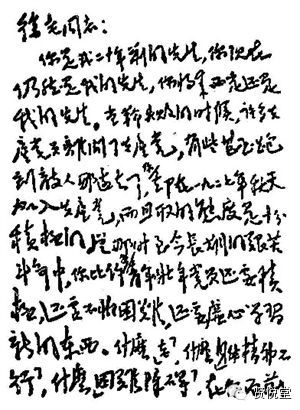 徐老同志：
你是我二十年前的先生，你现在
仍然是我的先生，你将来必定还是
我的先生。当革命失败的时候，许多共
产党员离开了共产党，有些甚至跑
到敌人那边去了，你却在一九二七年秋天
加入共产党，而且取的态度是十分
积极的。从那时至今长期的艰苦
斗争中，你比许多青年壮年党员还要积
极，还要不怕困难，还要虚心学习
新的东西。什么“老”，什么“身体精神不
行”，什么“困难障碍”，在你面前
贤悦堂